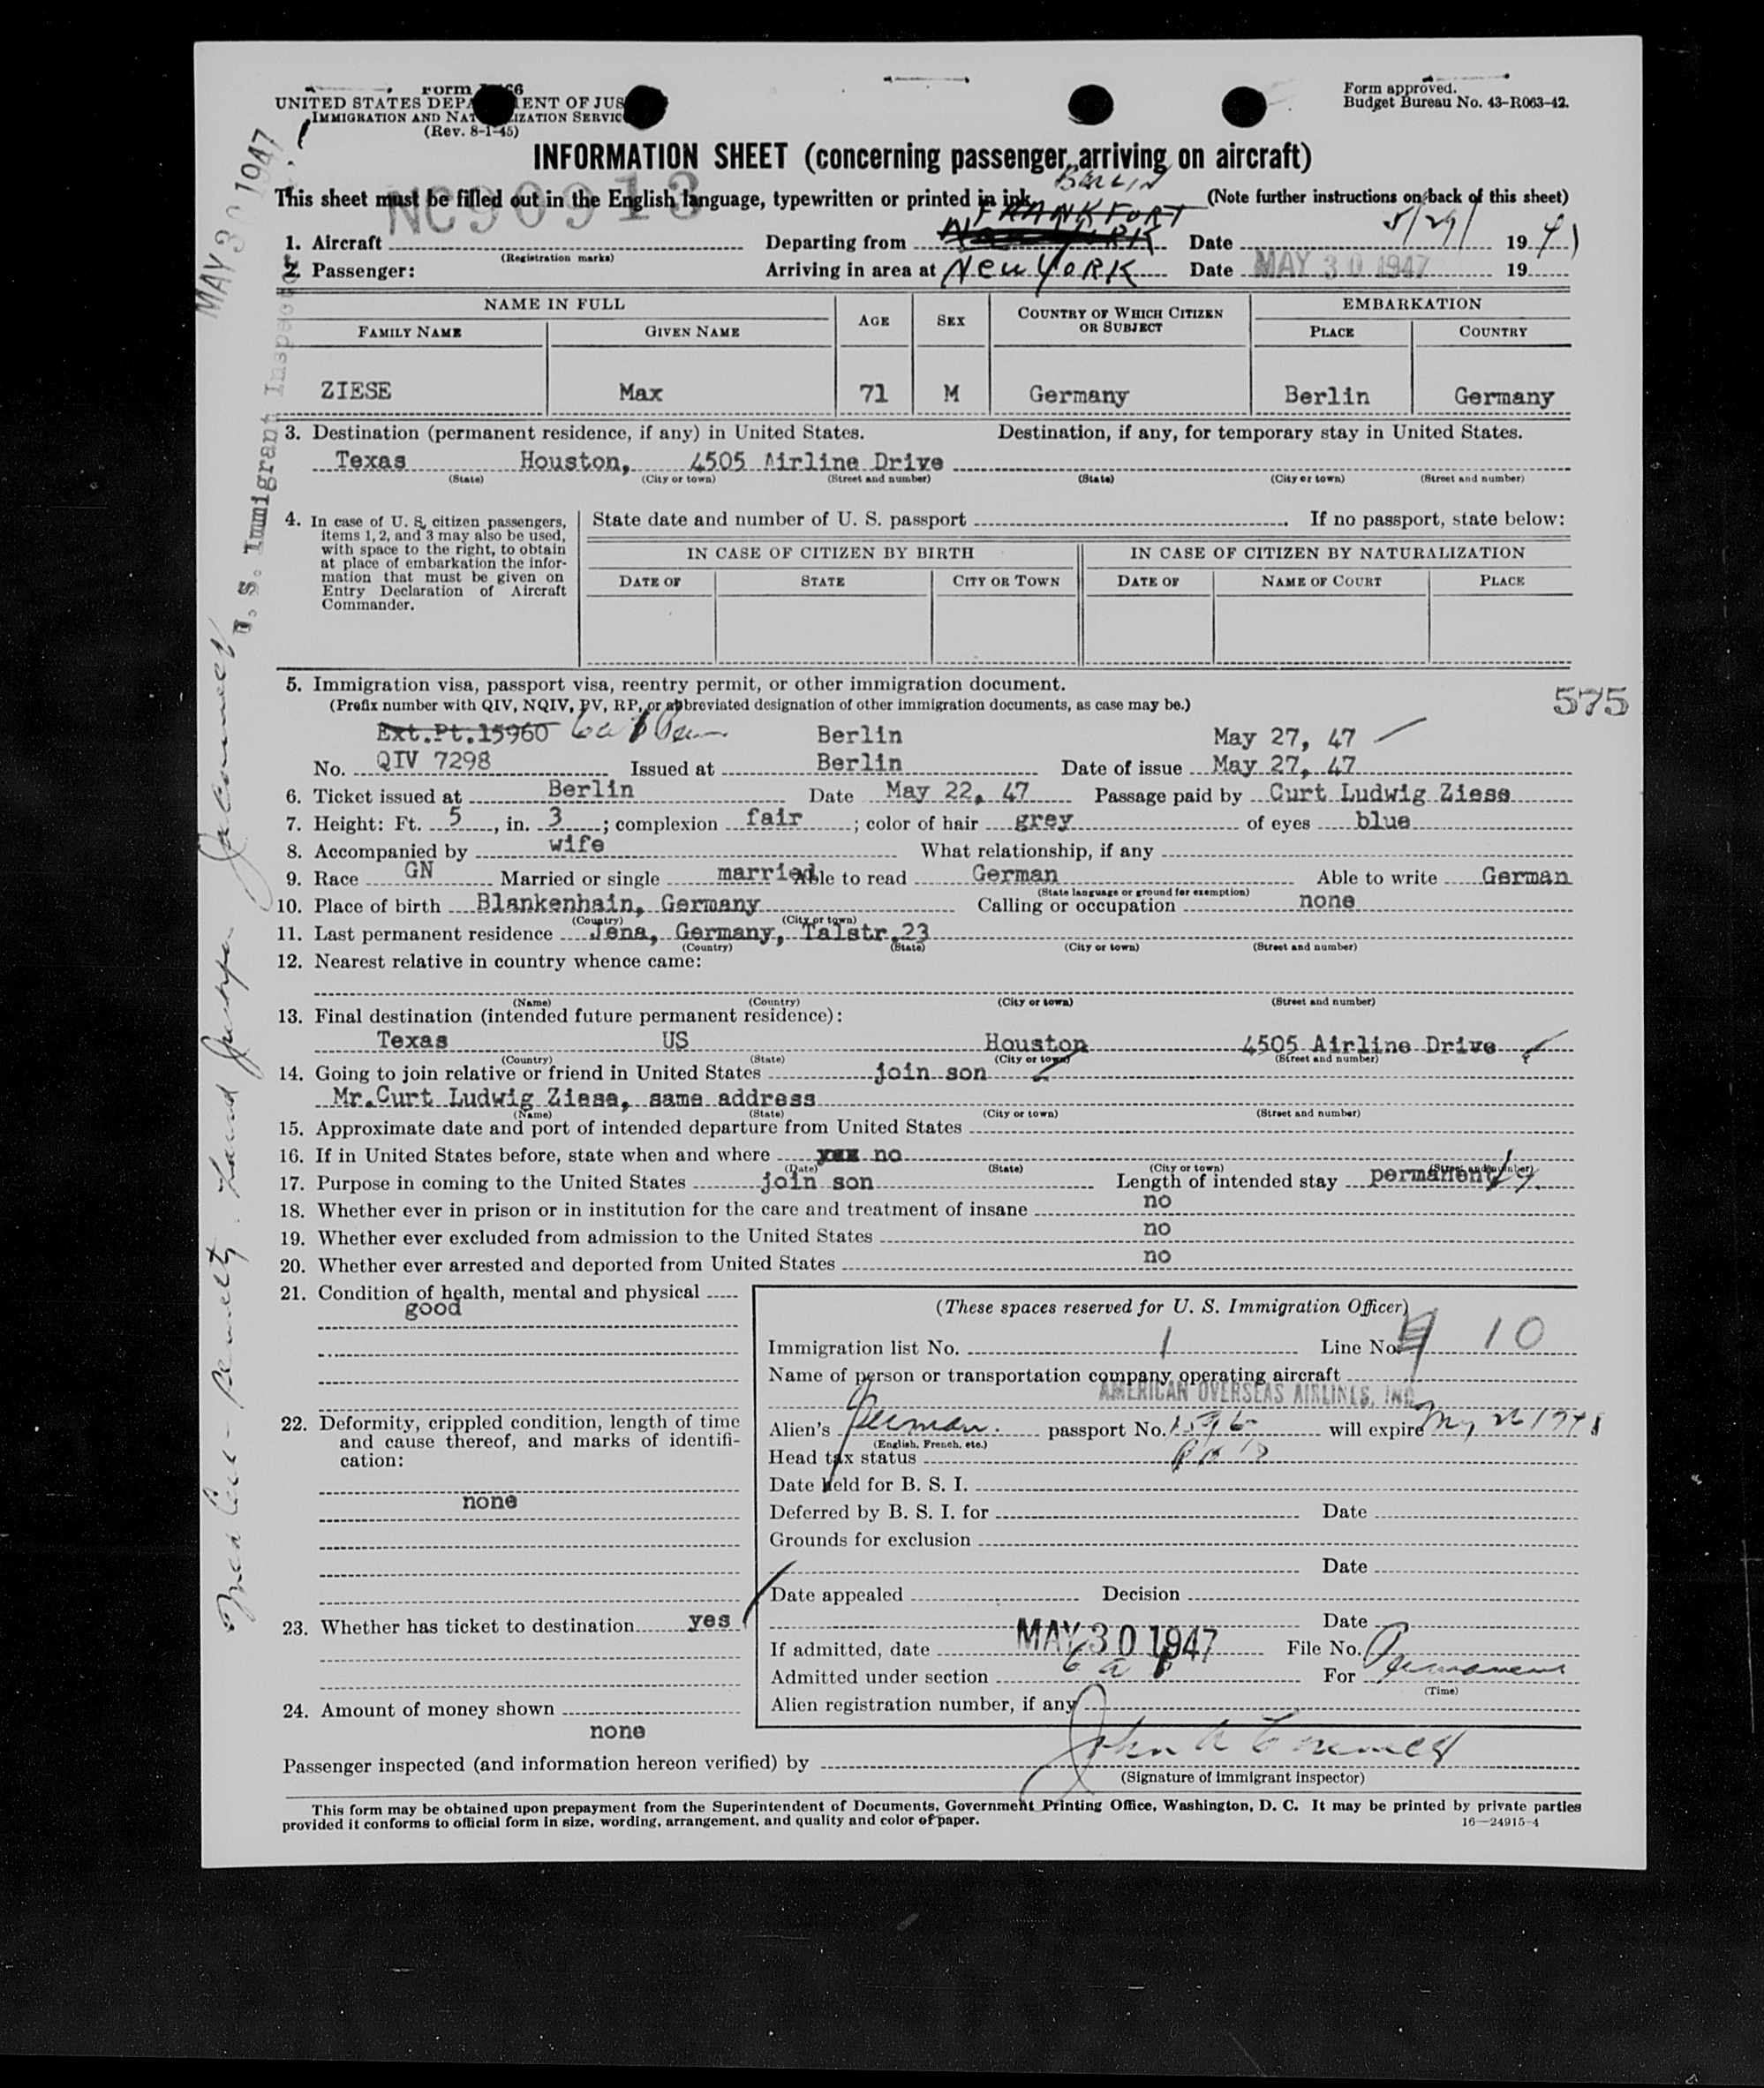 Form
UNITED STATES DEPA ENT OF JUS
IMMIGRATION AND NAT IZATION SERVIC
(Rev. 8-1-45)
Form approved.
Budget Bureau No. 43-R063-42.
INFORMATION SHEET (concerning passenger arriving on aircraft)
MAY 30 1947
NC90913
This sheet must be filled out in the English language, typewritten or printed in ink.
(Note further instructions on back of this sheet)
BERLIN
FRANKFORT
1. Aircraft Departing from Date 5/29/ 19 47
(Registration marks)
2. Passenger: Arriving in area at New YORK Date MAY 30 1947 19
NAME IN FULL AGE SEX COUNTRY OF WHICH CITIZEN OR SUBJECT EMBARKATION
FAMILY NAME GIVEN NAME PLACE COUNTRY
ZIESE Max 71 M Germany Berlin Germany
3. Destination (permanent residence, if any) in United States. Destination, if any, for temporary stay in United States.
Texas Houston, 4505 Airline Drive
(State) (City or town) (Street and number) (State) (City or town) (Street and number)
U. S. Immigrant Inspector
4. In case of U. S. citizen passengers,
items 1, 2, and 3 may also be used,
with space to the right, to obtain
at place of embarkation the infor-
mation that must be given on
Entry Declaration of Aircraft
Commander.
State date and number of U. S. passport . If no passport, state below:
IN CASE OF CITIZEN BY BIRTH IN CASE OF CITIZEN BY NATURALIZATION
DATE OF STATE CITY OR TOWN DATE OF NAME OF COURT PLACE
5. Immigration visa, passport visa, reentry permit, or other immigration document.
(Prefix number with QIV, NQIV, PV, RP, or abbreviated designation of other immigration documents, as case may be.)
575
Ext.Pt.15960 Berlin May 27, 47
No. QIV 7298 Issued at Berlin Date of issue May 27, 47
6. Ticket issued at Berlin Date May 22, 47 Passage paid by Curt Ludwig Ziese
7. Height: Ft. 5, in. 3; complexion fair; color of hair grey of eyes blue
8. Accompanied by wife What relationship, if any
9. Race GN Married or single married Able to read German Able to write German
(State language or ground for exemption)
10. Place of birth Blankenhain, Germany Calling or occupation none
(Country) (City or town)
11. Last permanent residence Jena, Germany, Talstr.23
(Country) (State) (City or town) (Street and number)
12. Nearest relative in country whence came:
(Name) (Country) (City or town) (Street and number)
13. Final destination (intended future permanent residence):
Texas US Houston 4505 Airline Drive
(Country) (State) (City or town) (Street and number)
14. Going to join relative or friend in United States join son
Mr.Curt Ludwig Ziese, same address
(Name) (State) (City or town) (Street and number)
15. Approximate date and port of intended departure from United States
16. If in United States before, state when and where no
(Date) (State) (City or town) (Street and number)
17. Purpose in coming to the United States join son Length of intended stay permanently
18. Whether ever in prison or in institution for the care and treatment of insane no
19. Whether ever excluded from admission to the United States no
20. Whether ever arrested and deported from United States no
21. Condition of health, mental and physical
good
22. Deformity, crippled condition, length of time
and cause thereof, and marks of identifi-
cation:
none
23. Whether has ticket to destination yes
24. Amount of money shown
none
(These spaces reserved for U. S. Immigration Officer)
Immigration list No. 1 Line No. 10
Name of person or transportation company operating aircraft
AMERICAN OVERSEAS AIRLINES, INC.
Alien's German passport No. will expire May 26 1948
(English, French, etc.)
Head tax status
Date held for B. S. I.
Deferred by B. S. I. for Date
Grounds for exclusion
Date
Date appealed Decision
Date
If admitted, date MAY 30 1947 File No.
Admitted under section 6 a For Permanent
(Time)
Alien registration number, if any
Passenger inspected (and information hereon verified) by
(Signature of immigrant inspector)
This form may be obtained upon prepayment from the Superintendent of Documents, Government Printing Office, Washington, D. C. It may be printed by private parties
provided it conforms to official form in size, wording, arrangement, and quality and color of paper.
16—24915-4